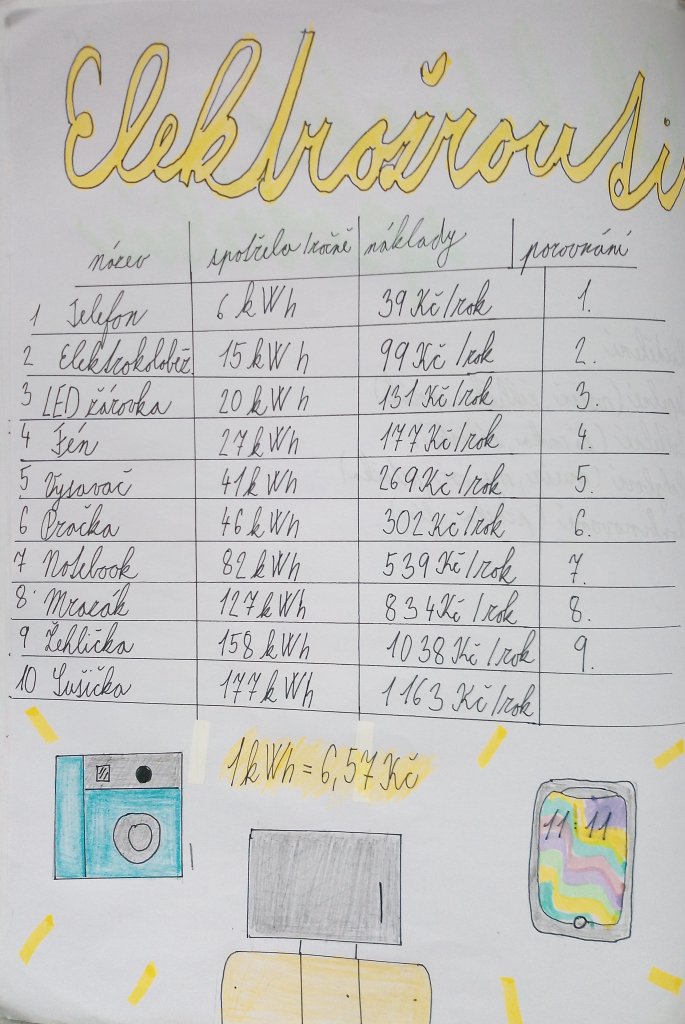 Elektrožrouti
název spotřeba/ročně náklady porovnání
1 Telefon 6 kWh 39 Kč/rok 1.
2 Elektrokoloběž. 15 kWh 99 Kč/rok 2.
3 LED žárovka 20 kWh 131 Kč/rok 3.
4 Fén 27 kWh 177 Kč/rok 4.
5 Vysavač 41 kWh 269 Kč/rok 5.
6 Pračka 46 kWh 302 Kč/rok 6.
7 Notebook 82 kWh 539 Kč/rok 7.
8 Mrazák 127 kWh 834 Kč/rok 8.
9 Žehlička 158 kWh 1038 Kč/rok 9.
10 Sušička 177 kWh 1163 Kč/rok
1 kWh = 6,57 Kč
11:11